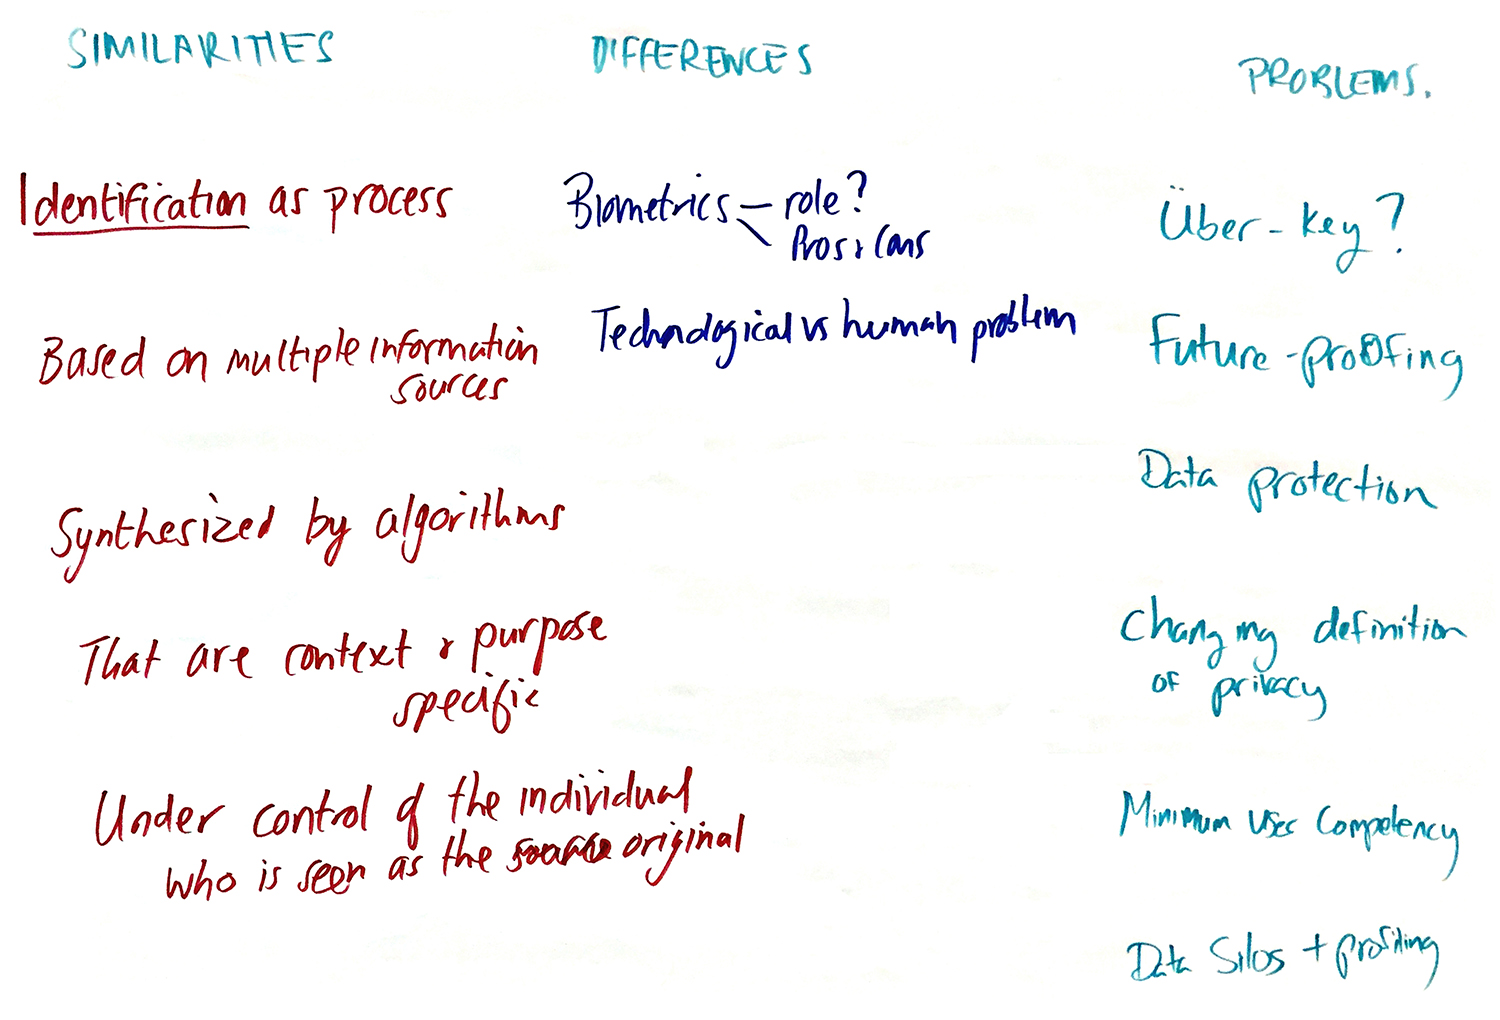 SIMILARITIES
Identification as process
Based on multiple information
sources
Synthesized by algorithms
That are context & purpose
specific
Under control of the individual
who is seen as the original
DIFFERENCES
Biometrics — role?
Pros & Cons
Technological vs human problem
PROBLEMS.
Über-key?
Future-proofing
Data protection
Changing definition
of privacy
Minimum user competency
Data Silos + profiling